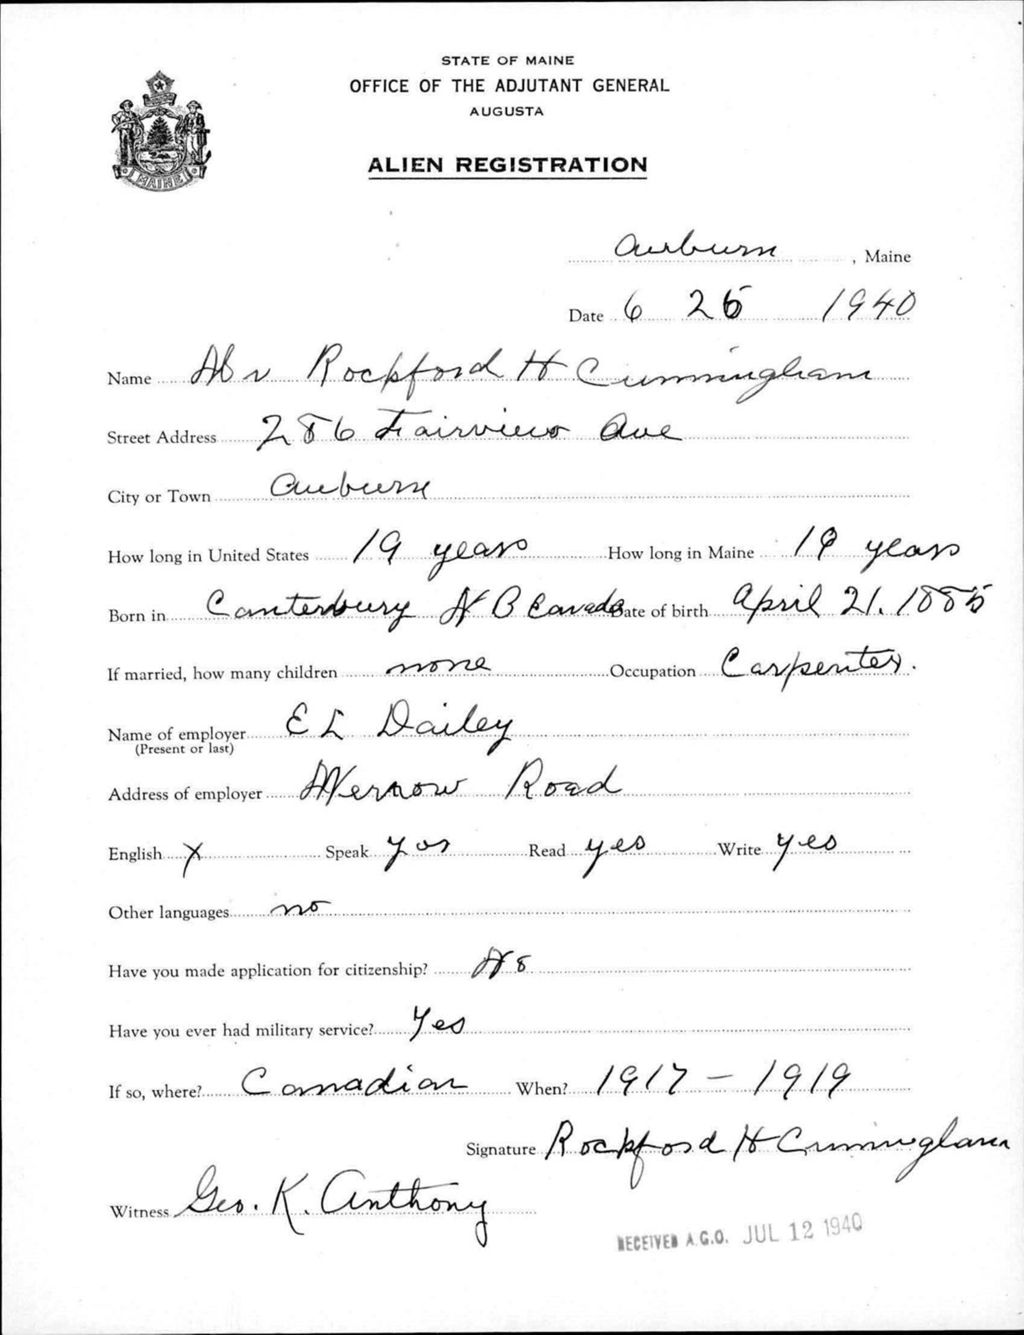 STATE OF MAINE
OFFICE OF THE ADJUTANT GENERAL
AUGUSTA
ALIEN REGISTRATION
MAINE
Auburn, Maine
Date 6 25 1940
Name Mr Rockford H Cunningham
Street Address 286 Fairview Ave
City or Town Auburn
How long in United States 19 years How long in Maine 19 years
Born in Canterbury N B Canada Date of birth April 21. 1885
If married, how many children none Occupation Carpenter.
Name of employer E L Dailey
(Present or last)
Address of employer Road
English X Speak yes Read yes Write yes
Other languages no
Have you made application for citizenship? No
Have you ever had military service? Yes
If so, where? Canadian When? 1917 - 1919
Signature Rockford H Cunningham
Witness Geo. K. Anthony
RECEIVED A.G.O. JUL 12 1940